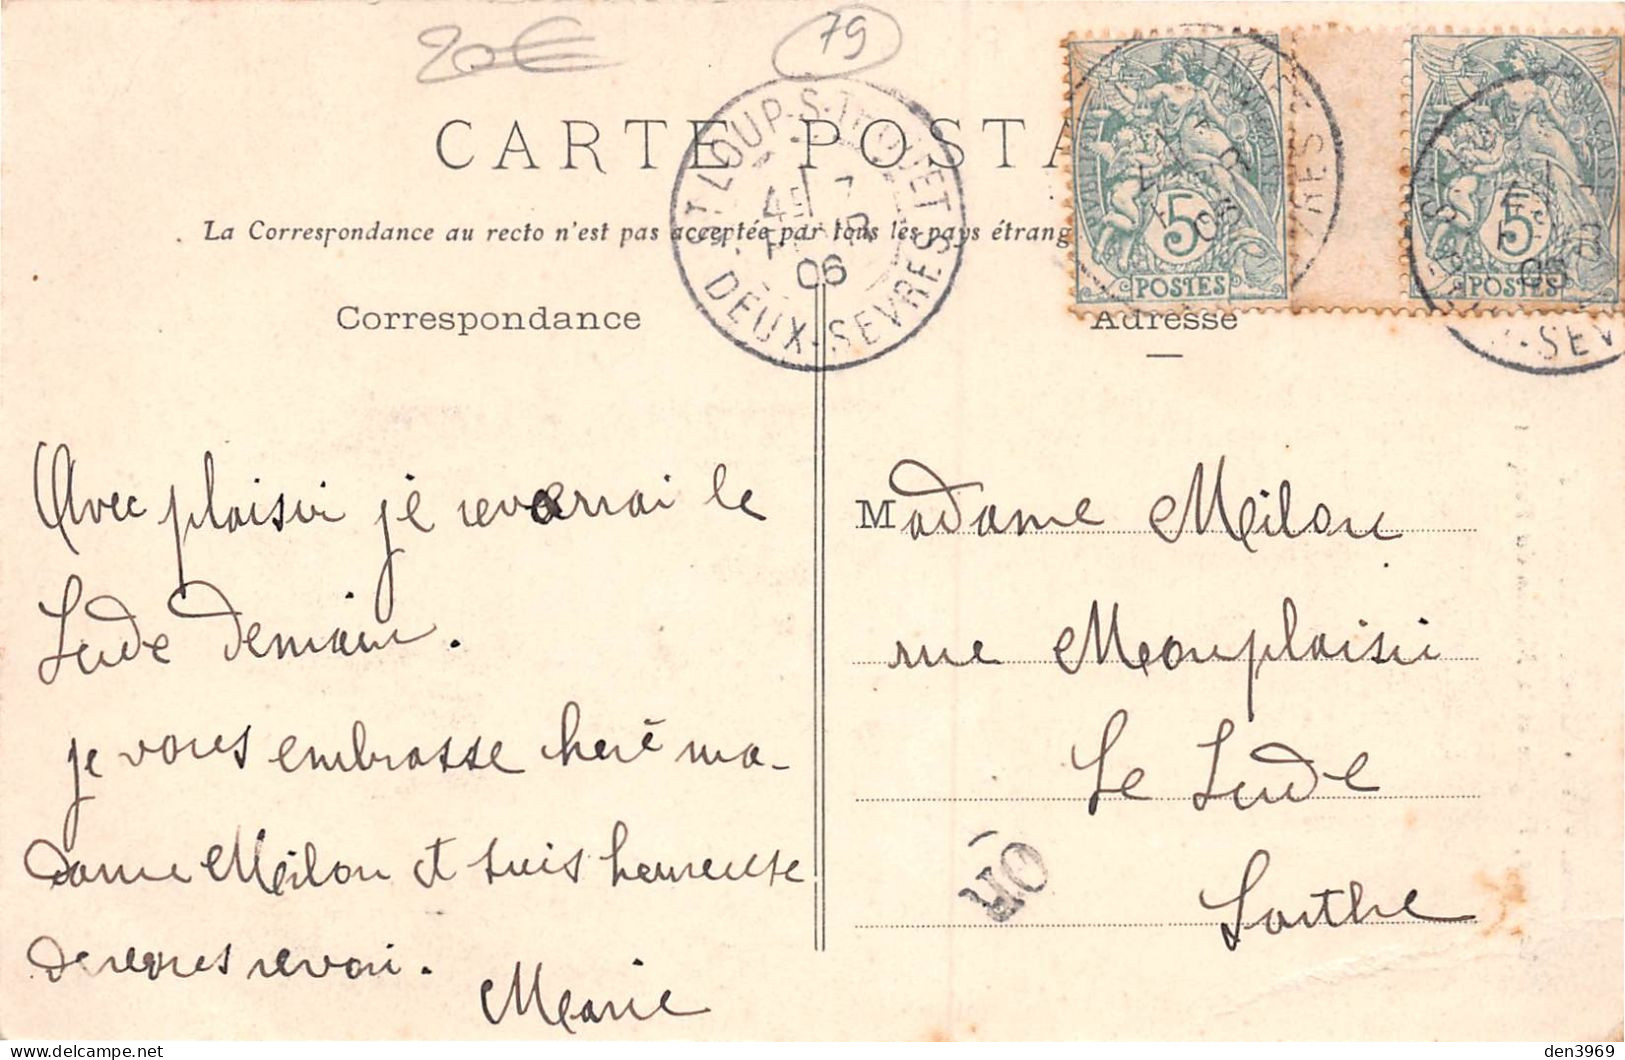 20€
79
CARTE POSTA
La Correspondance au recto n'est pas acceptée par tous les pays étrang
ST LOUP-S-THOUET
DEUX-SEVRES
06
5c
POSTES
5c
POSTES
Correspondance
Adresse
Avec plaisir je reverrai le
Lude demain.
je vous embrasse cheré ma-
dame Milon et suis heureuse
de vous revoir.
Marie
Madame Milon
rue Monplaisir
Le Lude
Sarthe
OR
den3969